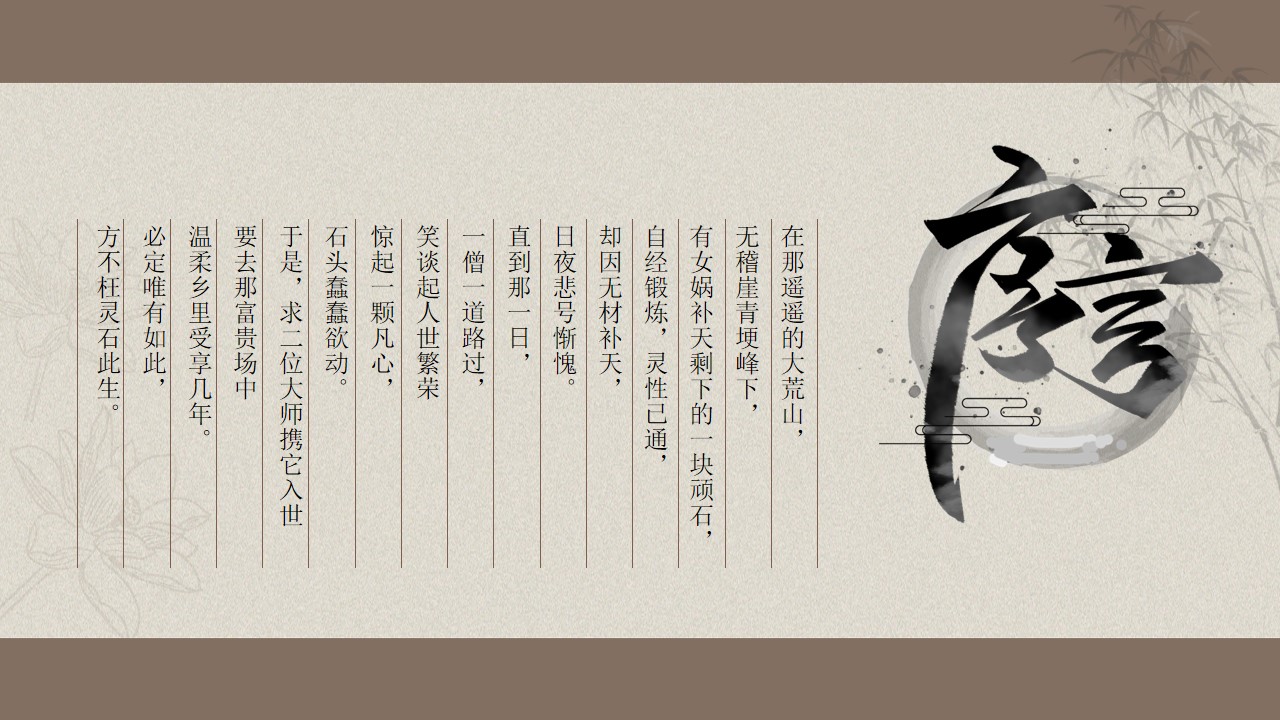 序言
在那遥遥的大荒山，
无稽崖青埂峰下，
有女娲补天剩下的一块顽石，
自经锻炼，灵性已通，
却因无材补天，
日夜悲号惭愧。
直到那一日，
一僧一道路过，
笑谈起人世繁荣
惊起一颗凡心，
石头蠢蠢欲动。
于是，求二位大师携它入世
要去那富贵场中
温柔乡里受享几年。
必定唯有如此，
方不枉灵石此生。